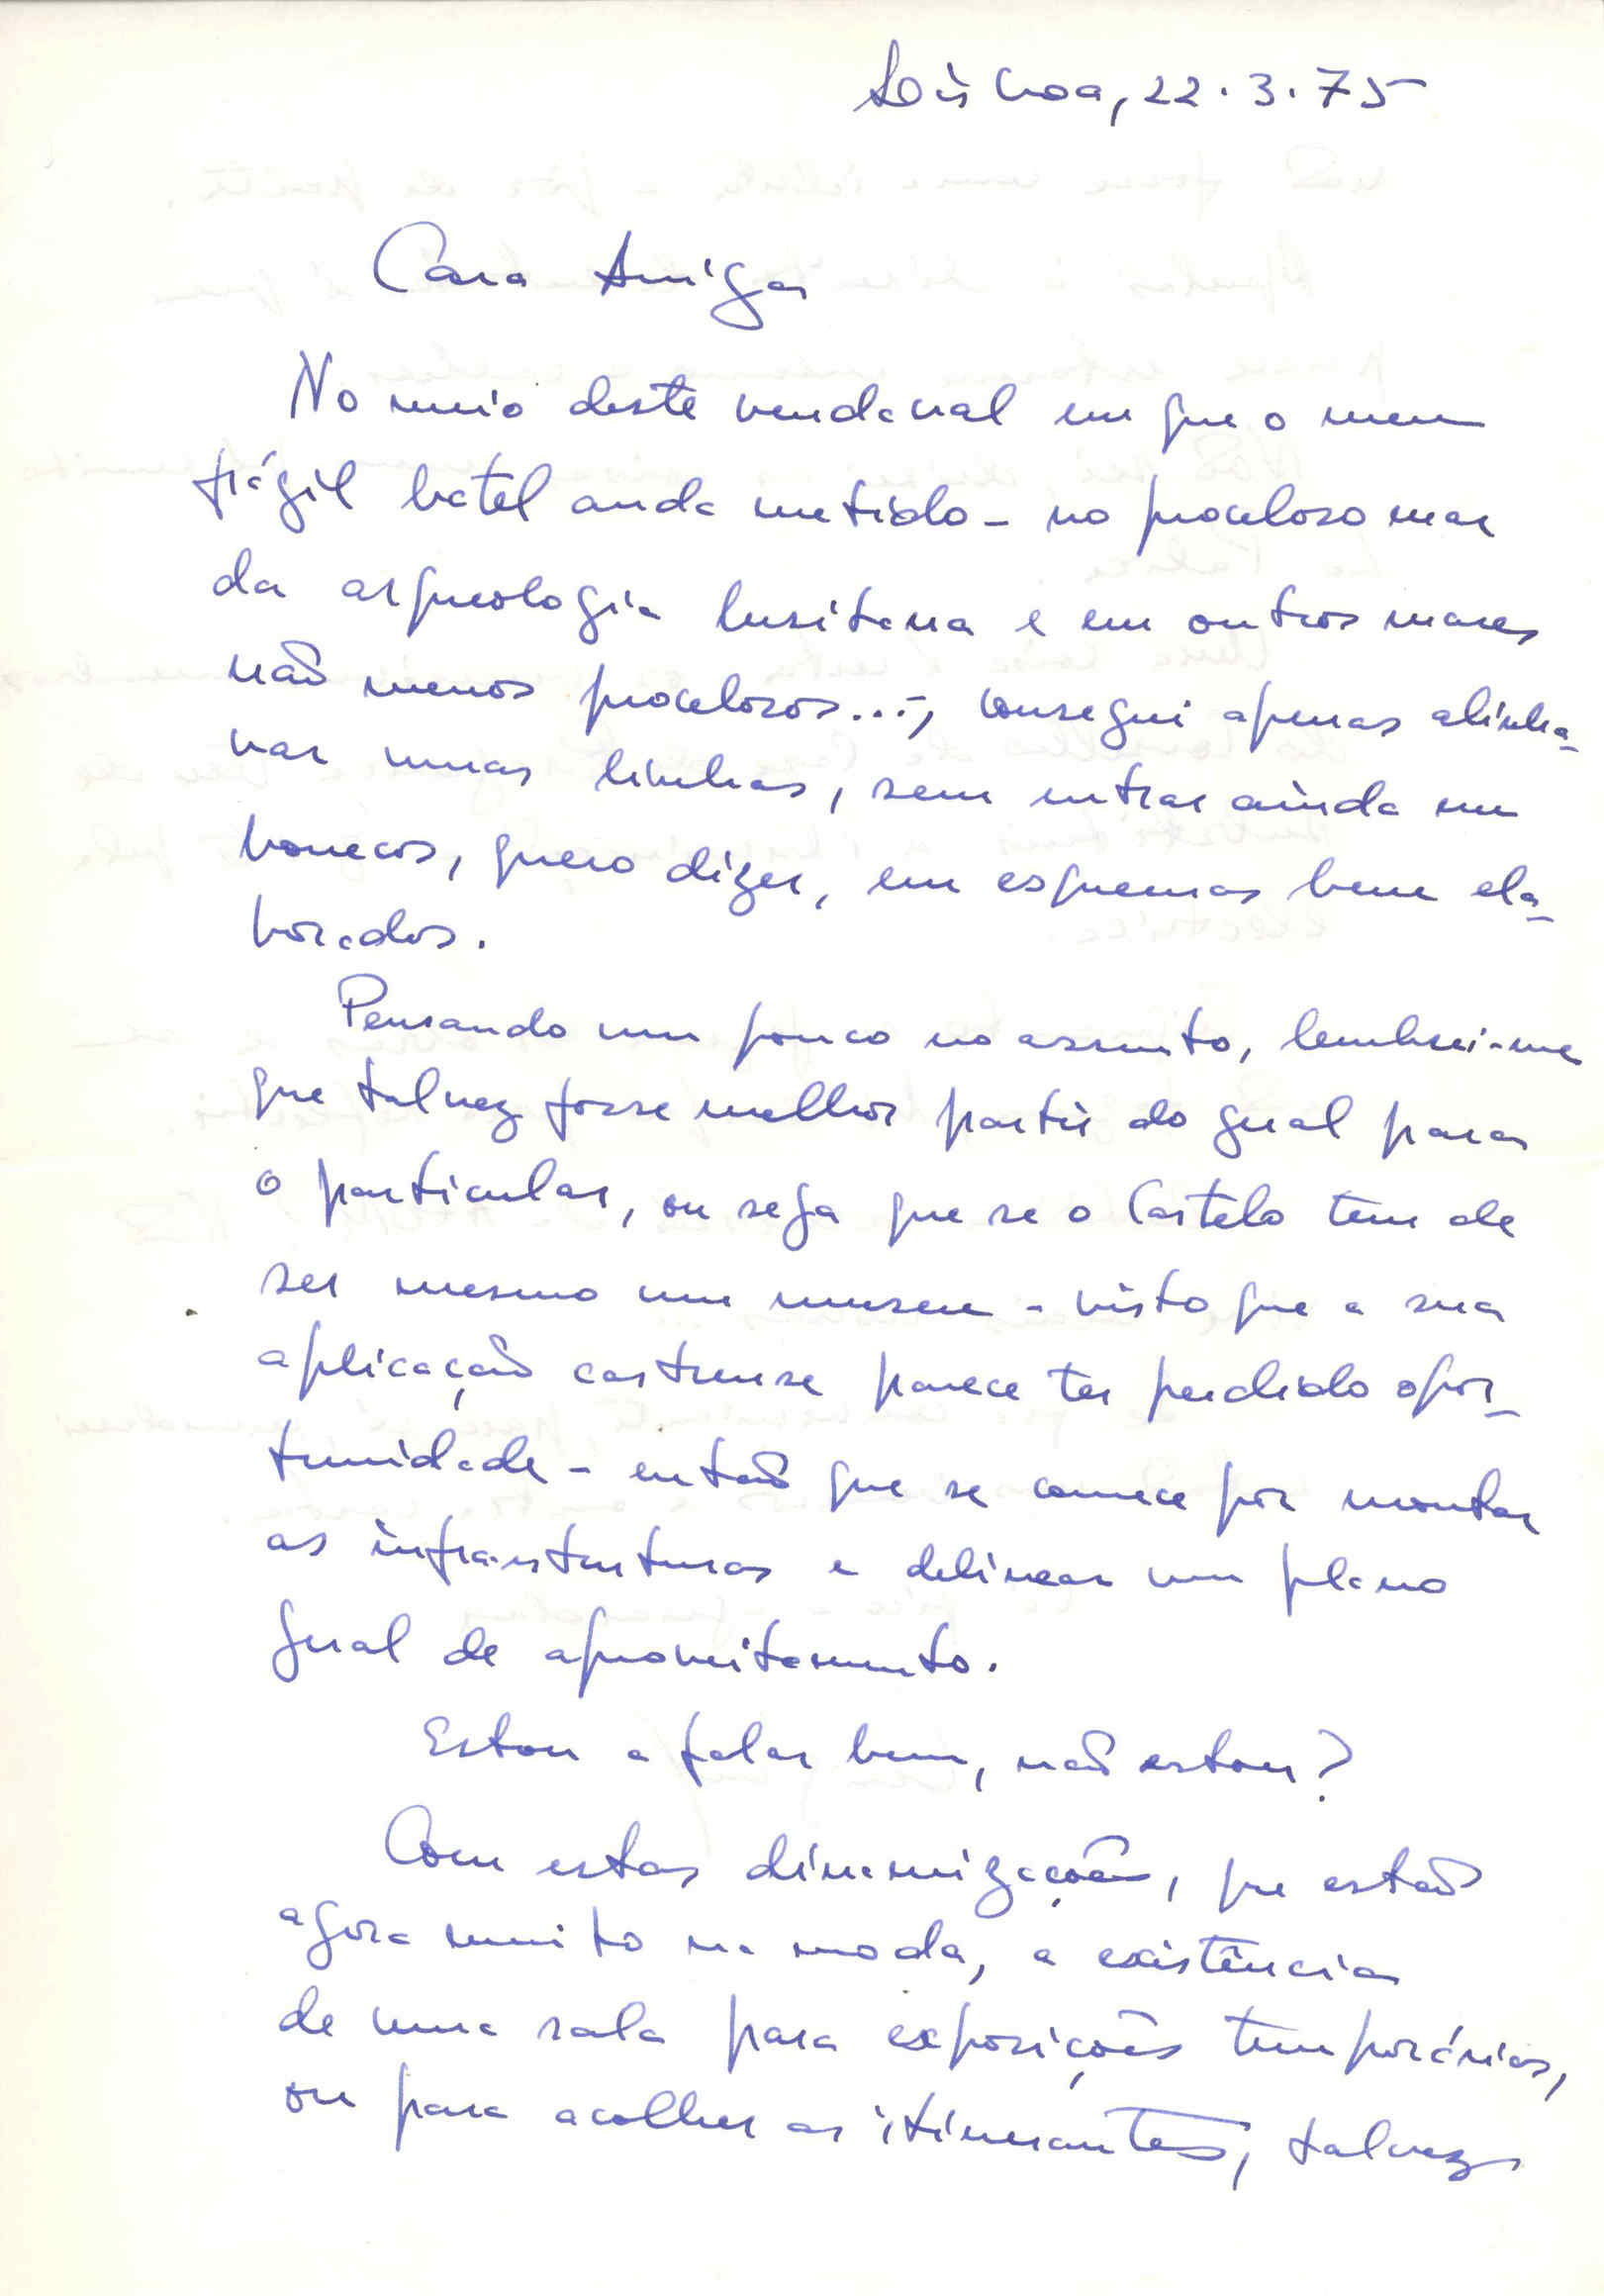 Lisboa, 22.3.75
Cara Amiga
No meio deste vendaval em que o meu
frágil batel anda metido - no proceloso mar
da arqueologia lusitana e em outros mares
não menos procelosos...-, consegui apenas alinha-
var umas linhas, sem entrar ainda em
bonecos, quero dizer, em esquemas bem ela-
borados.
Pensando um pouco no assunto, lembrei-me
que talvez fosse melhor partir do geral para
o particular, ou seja que se o Castelo tem de
ser mesmo um museu - visto que a sua
aplicação castrense parece ter perdido opor-
tunidade - então que se comece por montar
as infra-estruturas e delinear um plano
geral de aproveitamento.
Estou a falar bem, não estou?
Com estas dinamizações, que estão
agora muito na moda, a existência
de uma sala para exposições temporárias,
ou para acolher as itinerantes, talvez